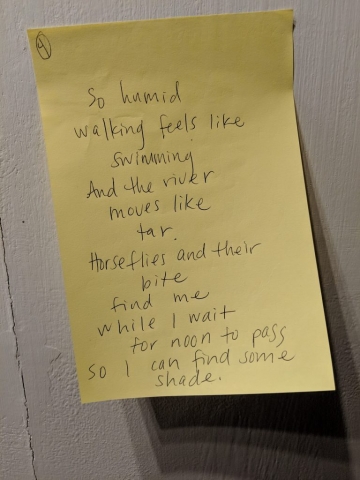 9
So humid
walking feels like
swimming
And the river
moves like
tar.
Horseflies and their
bite
find me
while I wait
for noon to pass
so I can find some
shade.